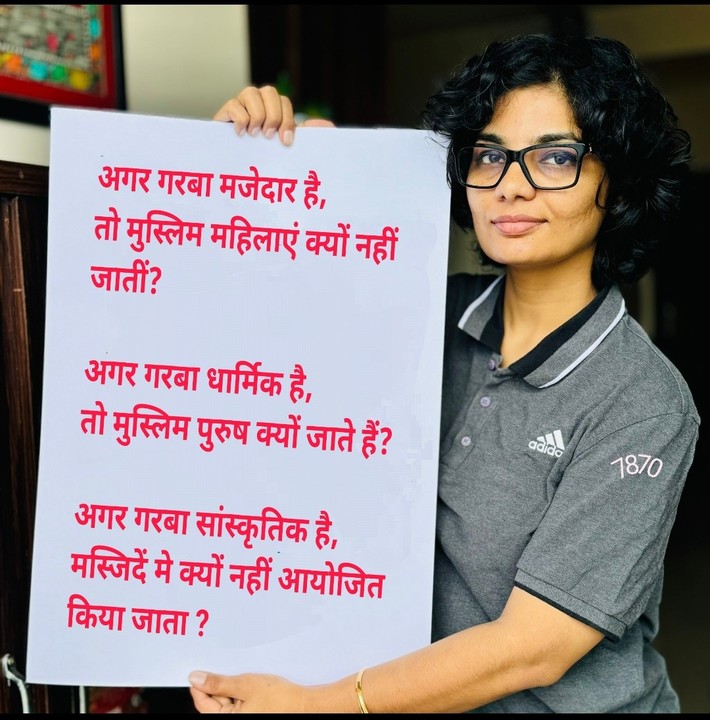 अगर गरबा मजेदार है,
तो मुस्लिम महिलाएं क्यों नहीं
जातीं?
अगर गरबा धार्मिक है,
तो मुस्लिम पुरुष क्यों जाते हैं?
अगर गरबा सांस्कृतिक है,
मस्जिदें मे क्यों नहीं आयोजित
किया जाता ?
adidas
7870